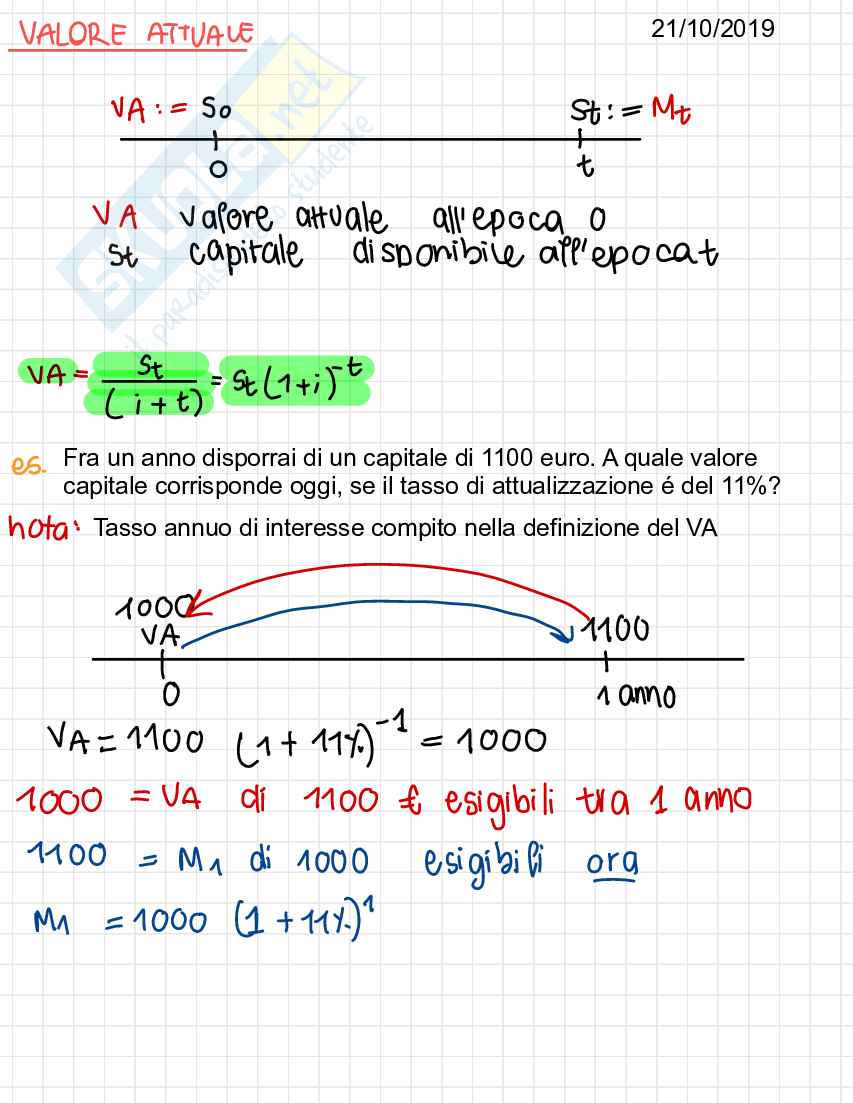 VALORE ATTUALE
21/10/2019
VA := So
St := Mt
0
t
VA valore attuale all'epoca 0
St capitale disponibile all'epoca t
VA = St / (i + t) = St (1+i)^-t
es. Fra un anno disporrai di un capitale di 1100 euro. A quale valore
capitale corrisponde oggi, se il tasso di attualizzazione é del 11%?
nota: Tasso annuo di interesse compito nella definizione del VA
1000
VA
1100
0
1 anno
VA = 1100 (1 + 11%)^-1 = 1000
1000 = VA di 1100 € esigibili tra 1 anno
1100 = M1 di 1000 esigibili ora
M1 = 1000 (1 + 11%)^1
SKUOLA.net
il paradiso dello studente